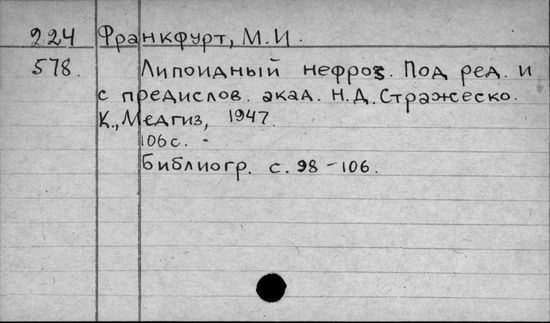 224 Франкфурт, М.И.
578. Липоидный нефроз. Под ред. и
с предислов. акад. Н.Д. Стражеско.
К., Медгиз, 1947.
106 с.
Библиогр. с. 98-106.